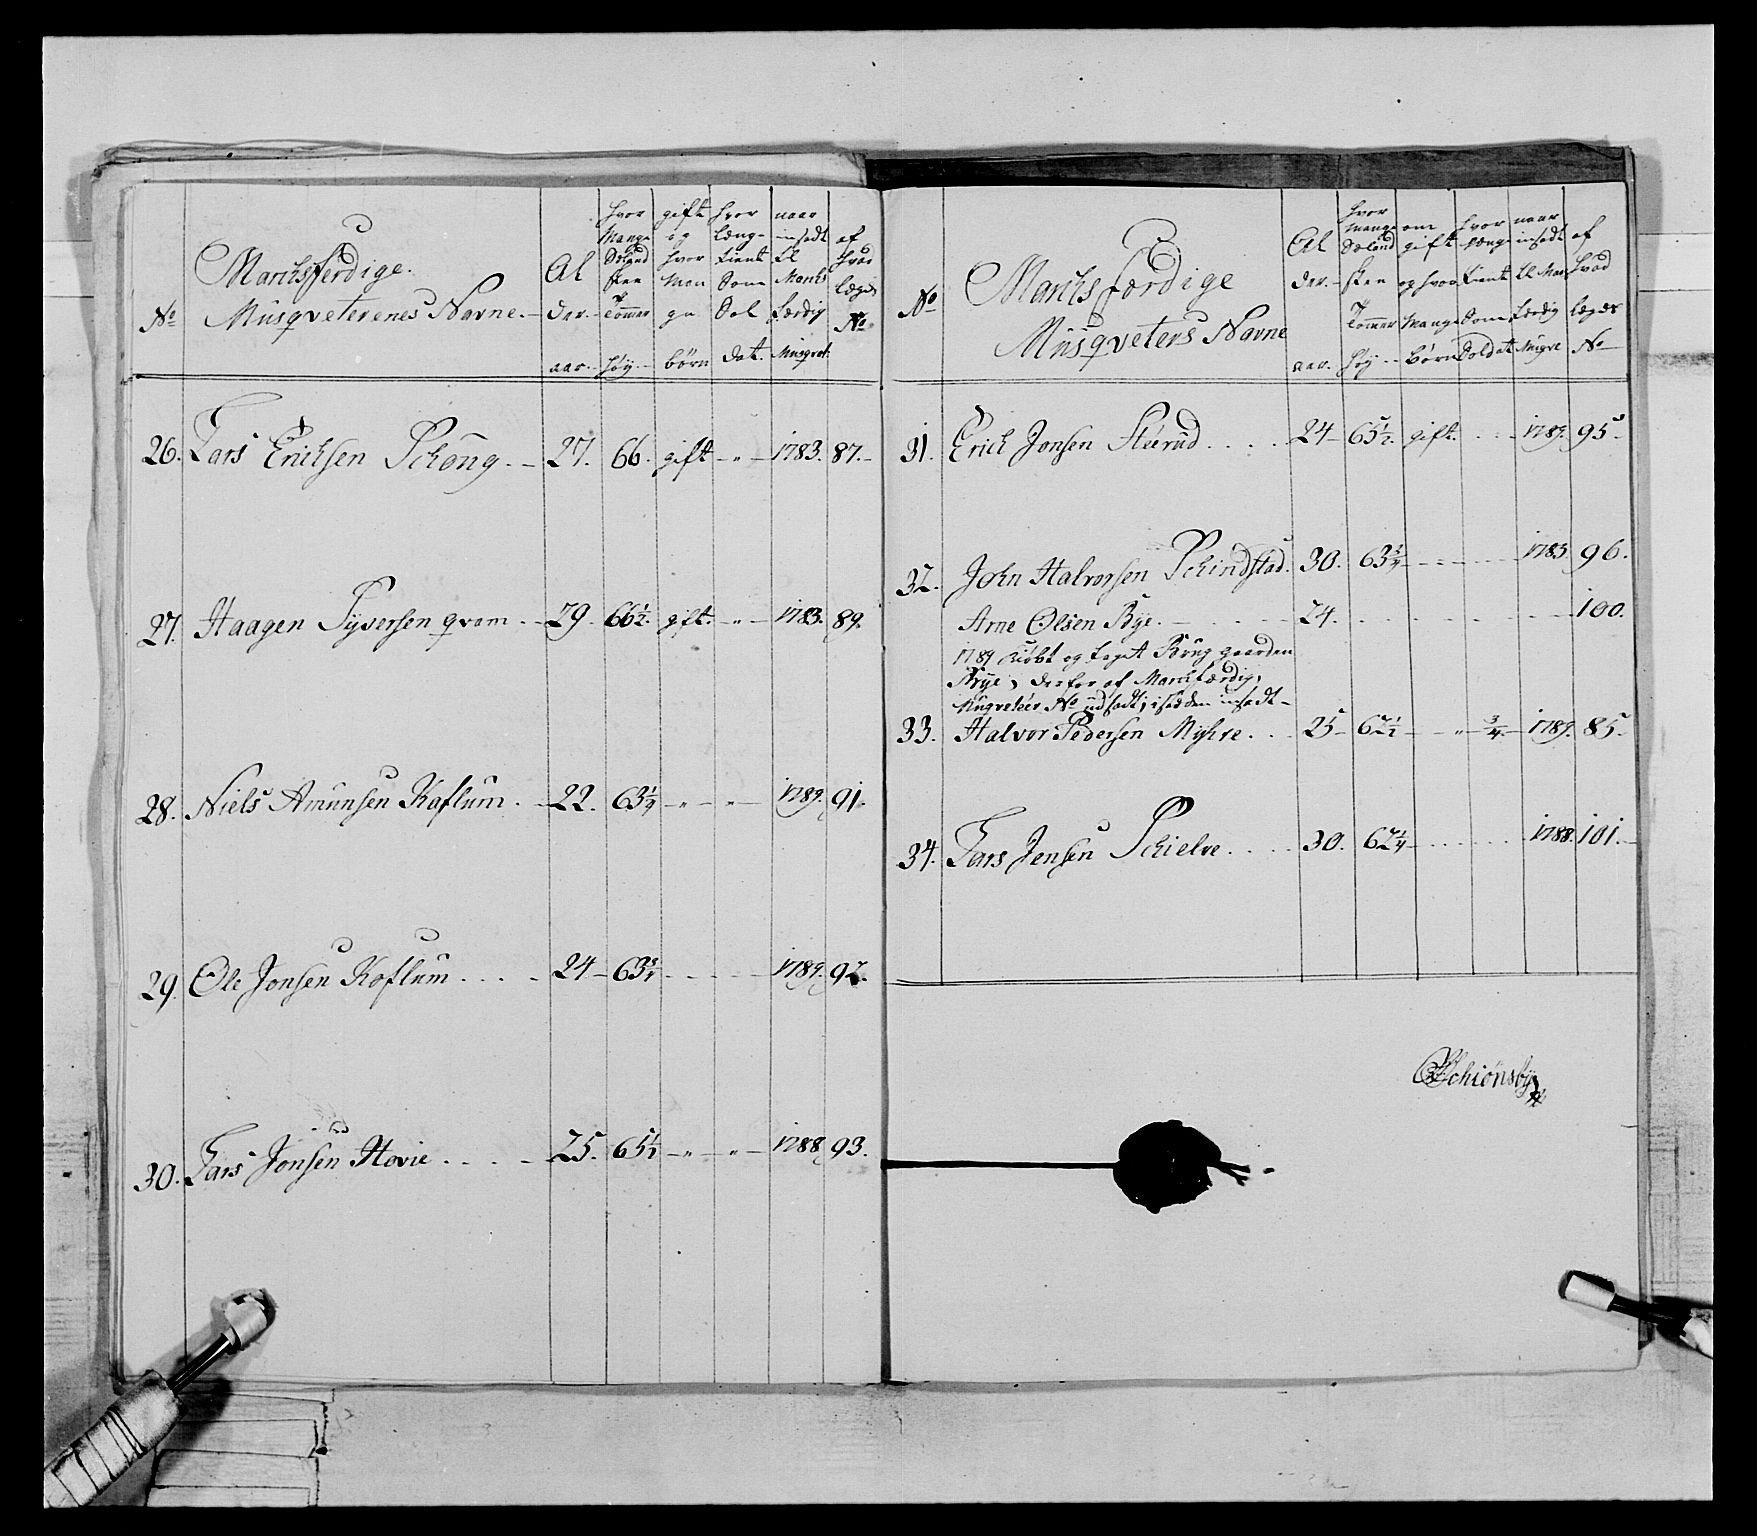 No
Marchsferdige.
Musqveterenes Navne.
Al
der.
aar.
hvor
Mange
Sælend
sken
Tommer
høy
gift
og
hvor
Man
ge
børn
hvor
læng-
tient
Som
Sol
dat.
naar
insadt
til
Marchs
færdig
Musqvet:
af
hvad
lægds
No
26. Lars Erichsen Schøng. 27. 66. gift - " - 1783. 87.
27. Haagen Syversen qvam 29. 66½. gift. " 1783. 89.
28. Niels Amunsen Koflum. 22. 63¼ " " 1789. 91.
29. Ole Jonsen Koflum .... 24. 63¾ 1789. 92.
30. Lars Jonsen Hovie .... 25. 65½ " " 1788. 93.
No
Marchsfærdige
Musqveters Navne
Al
der.
aar.
hvor
mange
Sælend
sken
Tommer
høy
om
gift
og hvor
Mange
børn
hvor
længe
tient
Som
Soldat
naar
insadt
til Mar
færdig
Musqve
af
hvad
lægds
No
31. Erich Jonsen Sterud .... 24 65½. gift. 1789. 95.
32. John Halvorsen Schindstad. 30. 63¾ 1783. 96.
Arne Olsen Rye. 24. 100.
1789 Kiøbt og taget Brug gaarden
Rye, derfor af Marchfærdig,
Musqveteer No udsadt, i steden insadt
33. Halvor Pedersen Myhre. 25 62½ " ¾ 1789. 85.
34. Lars Jensen Schielve .... 30. 62¼ 1788. 101.
Schiønsby